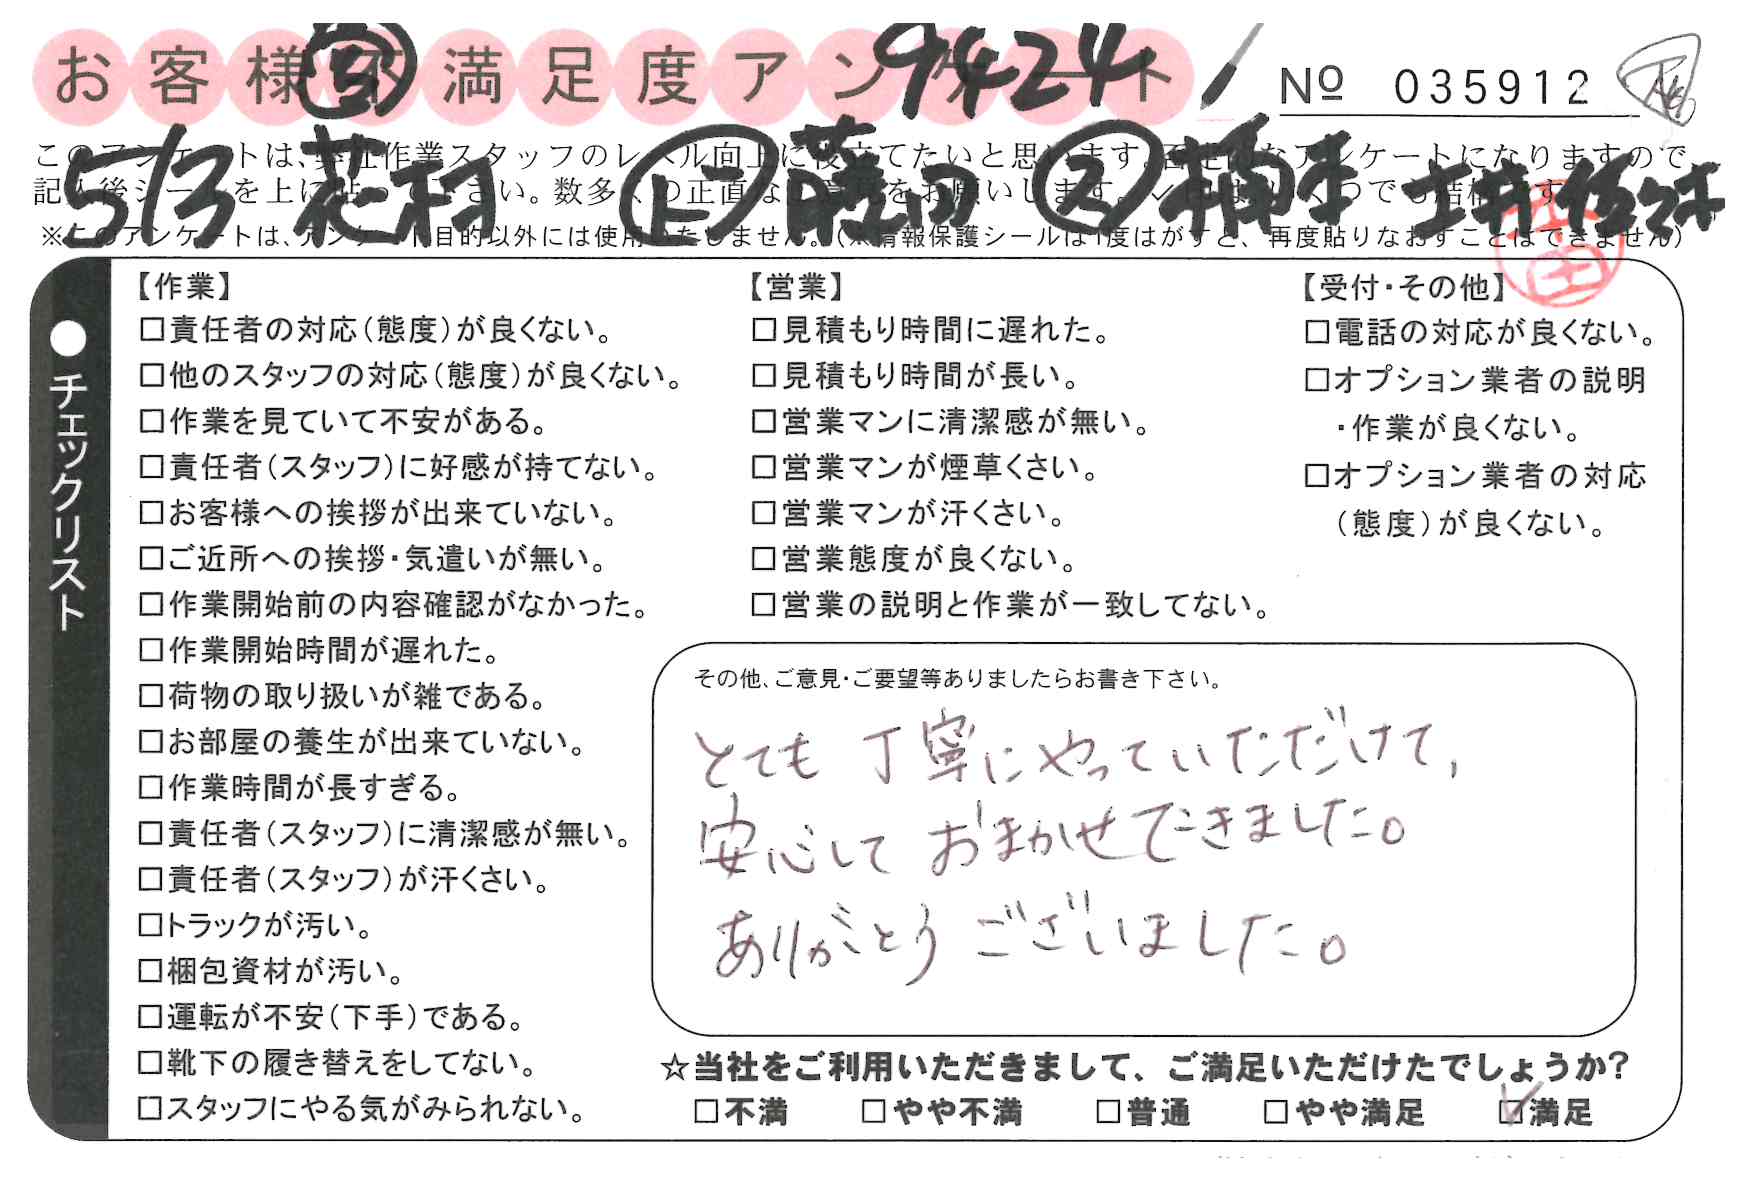 お客様不満足度アンケート 9424 № 035912
このアンケートは、弊社作業スタッフのレベル向上に役立てたいと思います。否定的なアンケートになりますので、
記入後シールを上に貼って下さい。数多くの正直なご意見をお願いします。✓印はいくつでも結構です
5/3 花村 ト 暁田 ス 楠本 土井 佐々木
※このアンケートは、アンケート目的以外には使用いたしません。(※情報保護シールは1度はがすと、再度貼りなおすことはできません)
●チェックリスト
【作業】
□責任者の対応(態度)が良くない。
□他のスタッフの対応(態度)が良くない。
□作業を見ていて不安がある。
□責任者(スタッフ)に好感が持てない。
□お客様への挨拶が出来ていない。
□ご近所への挨拶・気遣いが無い。
□作業開始前の内容確認がなかった。
□作業開始時間が遅れた。
□荷物の取り扱いが雑である。
□お部屋の養生が出来ていない。
□作業時間が長すぎる。
□責任者(スタッフ)に清潔感が無い。
□責任者(スタッフ)が汗くさい。
□トラックが汚い。
□梱包資材が汚い。
□運転が不安(下手)である。
□靴下の履き替えをしてない。
□スタッフにやる気がみられない。
【営業】
□見積もり時間に遅れた。
□見積もり時間が長い。
□営業マンに清潔感が無い。
□営業マンが煙草くさい。
□営業マンが汗くさい。
□営業態度が良くない。
□営業の説明と作業が一致してない。
【受付・その他】
□電話の対応が良くない。
□オプション業者の説明
・作業が良くない。
□オプション業者の対応
(態度)が良くない。
その他、ご意見・ご要望等ありましたらお書き下さい。
とても丁寧にやっていただけて、
安心しておまかせできました。
ありがとうございました。
☆当社をご利用いただきまして、ご満足いただけたでしょうか?
□不満 □やや不満 □普通 □やや満足 ☑満足